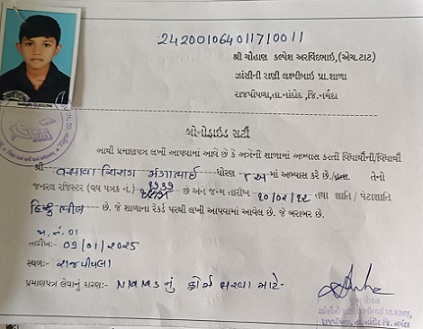 24200106401170011
શ્રી ચૌહાણ કલ્પેશ અરવિંદભાઇ,(એચ.ટાટ)
ઝાંસીની રાણી લક્ષ્મીબાઇ પ્રા.શાળા
રાજપીપળા,તા.નાંદોદ,જિ.નર્મદા
બોનોફાઇડ સર્ટી
આથી પ્રમાણપત્ર લખી આપવામાં આવે છે કે અત્રેની શાળામાં અભ્યાસ કરતી વિધાર્થીની/વિધાર્થી
શ્રી- વસાવા ચિરાગ ગંગાભાઈ ધોરણ ૮અ માં અભ્યાસ કરે છે/ તેનો
જનરલ રજિસ્ટર (વય પત્રક નં.) છે અને જન્મ તારીખ ૨૦/૦૨/૧૨ તથા જ્ઞાતિ / પેટાજ્ઞાતિ
હિન્દુ ભીલ છે. જે શાળાના રેકર્ડ પરથી લખી આપવામાં આવેલ છે. જે બરાબર છે.
પ્ર. નં. 01
તારીખ:- 09/01/2025
સ્થળ:- રાજપીપલા
પ્રમાણપત્ર લેવાનું કારણ:- NMMS નું ફોર્મ ભરવા માટે.